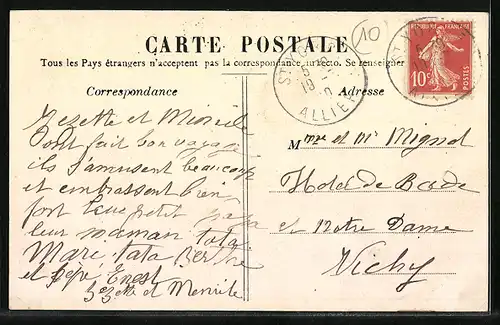 CARTE POSTALE
Tous les Pays étrangers n'acceptent pas la correspondance au recto. Se renseigner
Correspondance
Adresse
10
ST YORRE
ALLIER
10c
POSTES
Zezette et
Ont fait bon voyage
ils s'amusent beaucoup
et embrassent bien
fort leur petit papa
leur maman tata
Marie tata Berthe
et Ernest
Zezette et
Mme et Mr Mignot
Hotel de Bade
et Notre Dame
Vichy